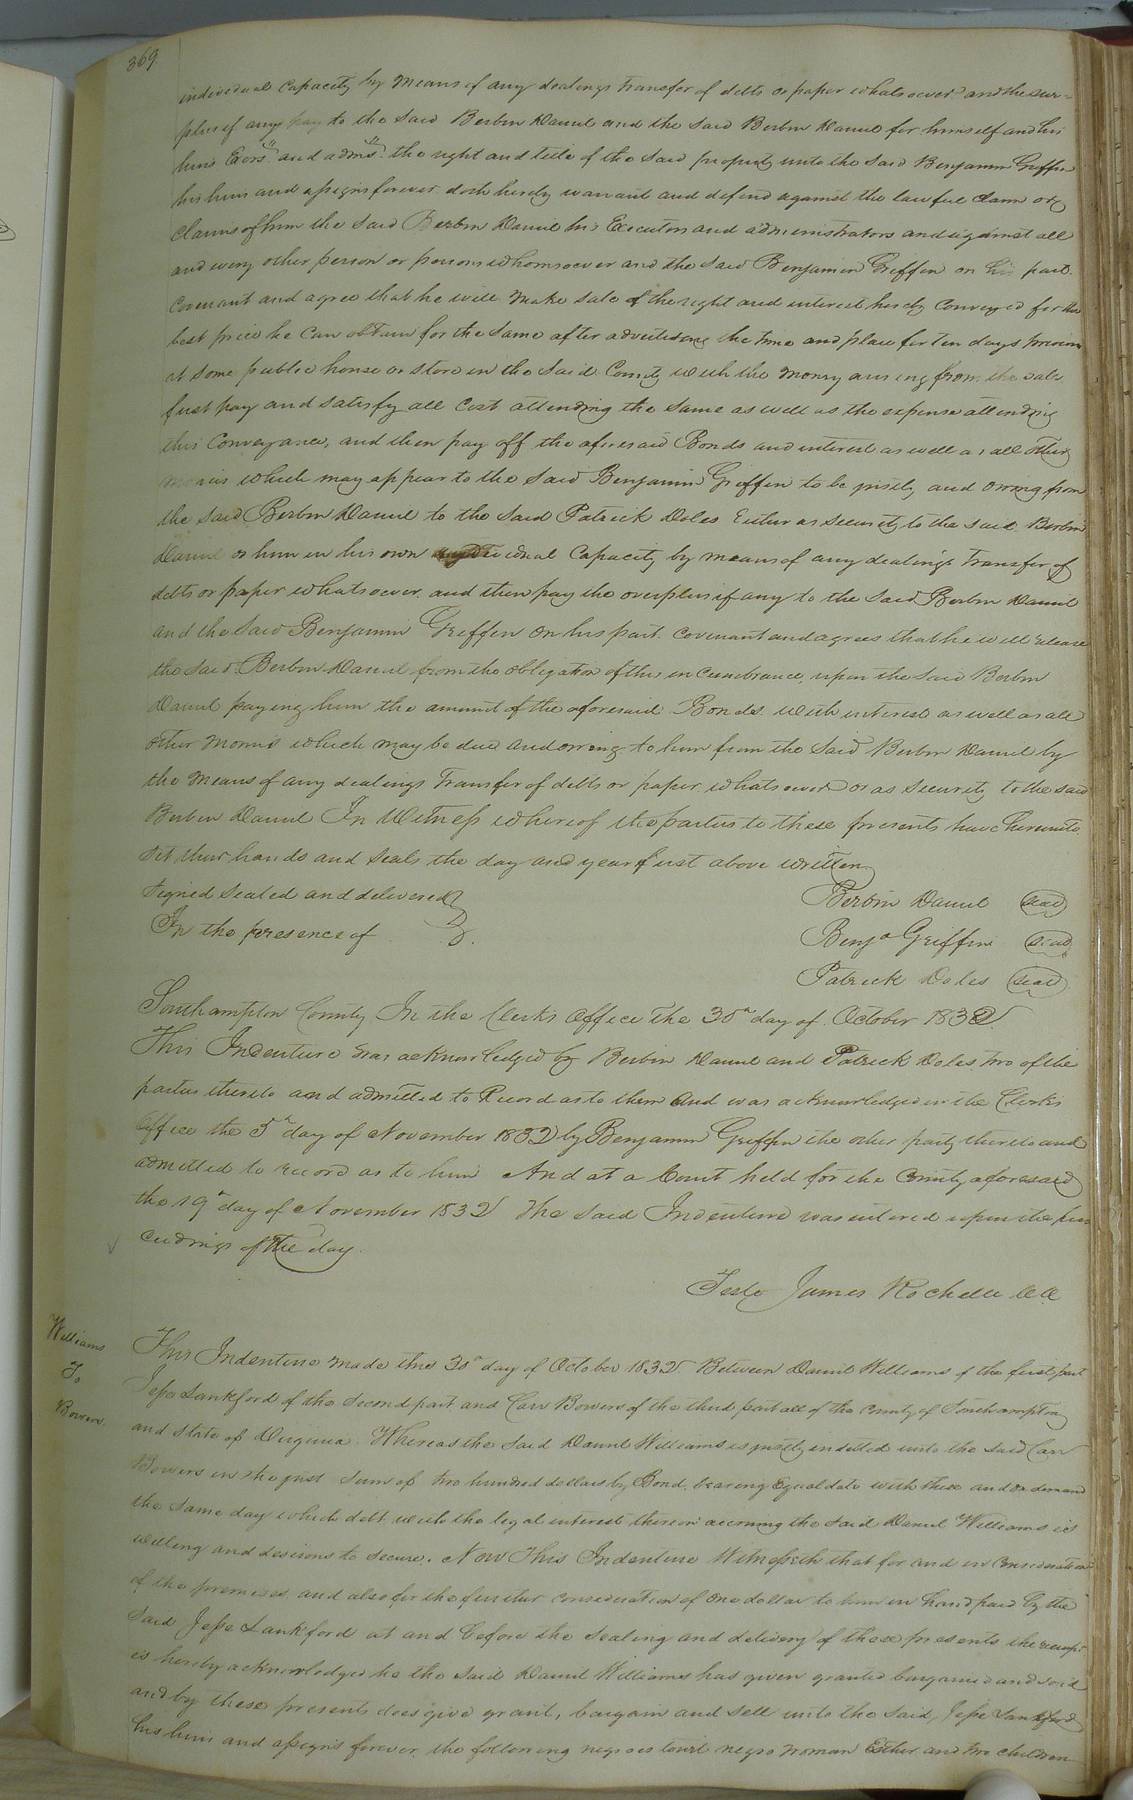 369
individual Capacity by Means of any dealings transfer of debts or paper whatsoever and the sur=
plus if any pay to the said Berbin Daniel and the said Berbin Daniel for himself and his
heirs Exors and adms the right and title of the said property unto the said Benjamin Griffin
his heirs and assigns forever doth hereby warrant and defend against the lawful Claim or
Claims of him the said Berbin Daniel his Executors and administrators and against all
and every other person or persons whomsoever and the said Benjamin Griffin on his part
Covenant and agree that he will make sale of the right and interest hereby Conveyed for the
best price he can obtain for the same after advertising the time and place for ten days previous
at some public house or store in the said County with the money arising from the sale
first pay and satisfy all Cost attending the same as well as the expense attending
this Conveyance, and then pay off the aforesaid Bonds and interest as well as all other
monies which may appear to the said Benjamin Griffin to be justly and owing from
the said Berbin Daniel to the said Patrick Doles Either as security to the said Berbin
Daniel or him in his own individual Capacity by means of any dealings transfer of
debts or paper whatsoever. and then pay the overplus if any to the said Berbin Daniel
and the said Benjamin Griffin on his part Covenant and agrees that he will release
the said Berbin Daniel from the obligation of this incumbrance, upon the said Berbin
Daniel paying him the amount of the aforesaid Bonds with interest as well as all
other monies which may be due and owing to him from the said Berbin Daniel by
the means of any dealings Transfer of debts or paper whatsoever or as security to the said
Berbin Daniel In Witness whereof the parties to these presents have hereunto
set their hands and seals the day and year first above written
Signed sealed and delivered
In the presence of
Berbin Daniel seal
Benja Griffin seal
Patrick Doles seal
Southampton County In the Clerk's Office The 30th day of October 1832
This Indenture was acknowledged by Berbin Daniel and Patrick Doles two of the
parties thereto and admitted to Record as to them And was acknowledged in the Clerk's
Office the 5th day of November 1832 by Benjamin Griffin the other party thereto and
admitted to record as to him And at a Court held for the County aforesaid
the 19th day of November 1832 The said Indenture was entered upon the pro
ceedings of the day.
Teste James Rochelle CC
Williams
To
Bowers
This Indenture made this 30th day of October 1832 Between Daniel Williams of the first part
Jesse Lankford of the second part and Carr Bowers of the third part all of the County of Southampton
and State of Virginia. Whereas the said Daniel Williams is justly indebted unto the said Carr
Bowers in the just sum of two hundred dollars by Bond, bearing Equal date with these and on demand
the same day which debt with the legal interest thereon accruing the said Daniel Williams is
willing and desirous to secure. Now This Indenture Witnesseth that for and in Consideration
of the premises and also for the further consideration of one dollar to him in hand paid by the
said Jesse Lankford at and before the sealing and delivery of these presents the receipt
is hereby acknowledged he the said Daniel Williams has given granted bargained and sold
and by these presents does give grant, bargain and sell unto the said, Jesse Lankford
his heirs and assigns forever the following negroes towit negro woman Esther and two children